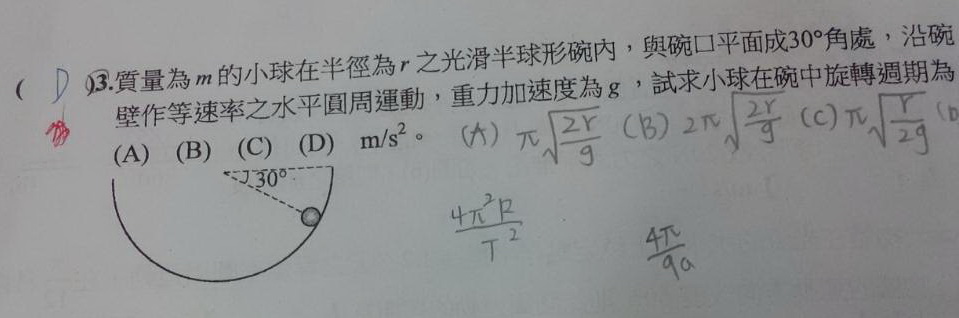 ( D )3.質量為m的小球在半徑為r之光滑半球形碗內,與碗口平面成30°角處,沿碗
壁作等速率之水平圓周運動,重力加速度為g,試求小球在碗中旋轉週期為
(A) (B) (C) (D) m/s²。 (A) π√(2r/g) (B) 2π√(2r/g) (C) π√(r/2g) (D
30°
4π²R/T²
4π